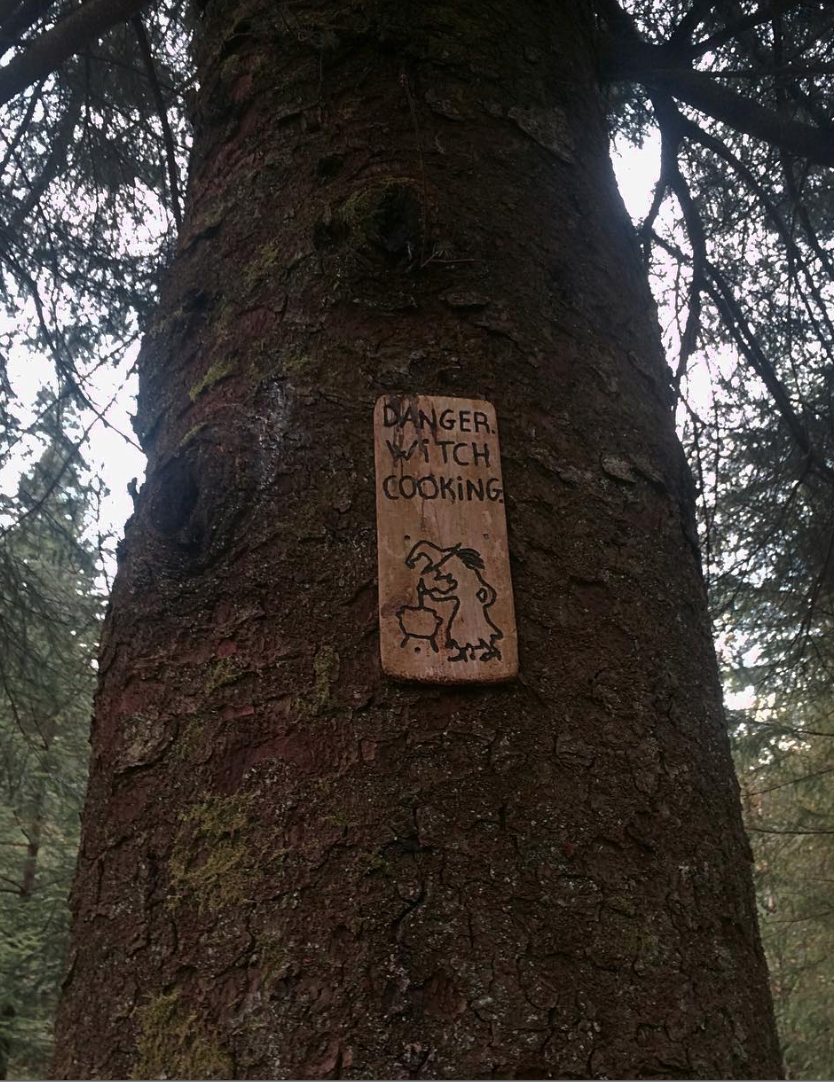 DANGER.
WiTCH
COOKiNG.